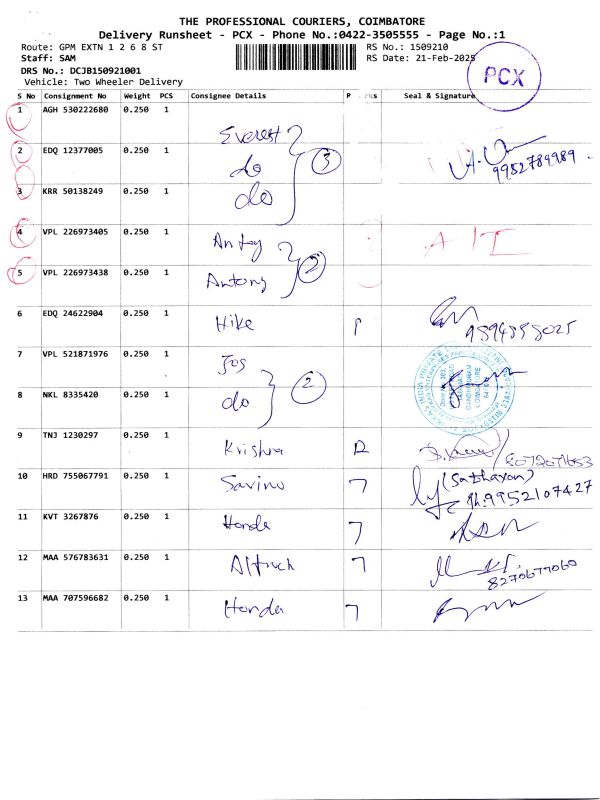 THE PROFESSIONAL COURIERS, COIMBATORE
Delivery Runsheet - PCX - Phone No.:0422-3505555 - Page No.:1
Route: GPM EXTN 1 2 6 8 ST RS No.: 1509210
Staff: SAM RS Date: 21-Feb-2025
DRS No.: DCJB150921001
Vehicle: Two Wheeler Delivery
PCX
S No Consignment No Weight PCS Consignee Details Seal & Signature
1 AGH 530222680 0.250 1 Everest
2 EDQ 12377005 0.250 1 do 3 9952789989
3 KRR 50138249 0.250 1 do
4 VPL 226973405 0.250 1 Antoy AIT
5 VPL 226973438 0.250 1 Antony 2
6 EDQ 24622904 0.250 1 Hike
7 VPL 521871976 0.250 1 Jos
8 NKL 8335420 0.250 1 do 2
9 TNJ 1230297 0.250 1 Krishna
10 HRD 755067791 0.250 1 Savino (Sathayan)
Ph:9952107427
11 KVT 3267876 0.250 1 Honda
12 MAA 576783631 0.250 1 8270677060
13 MAA 707596682 0.250 1 Honda